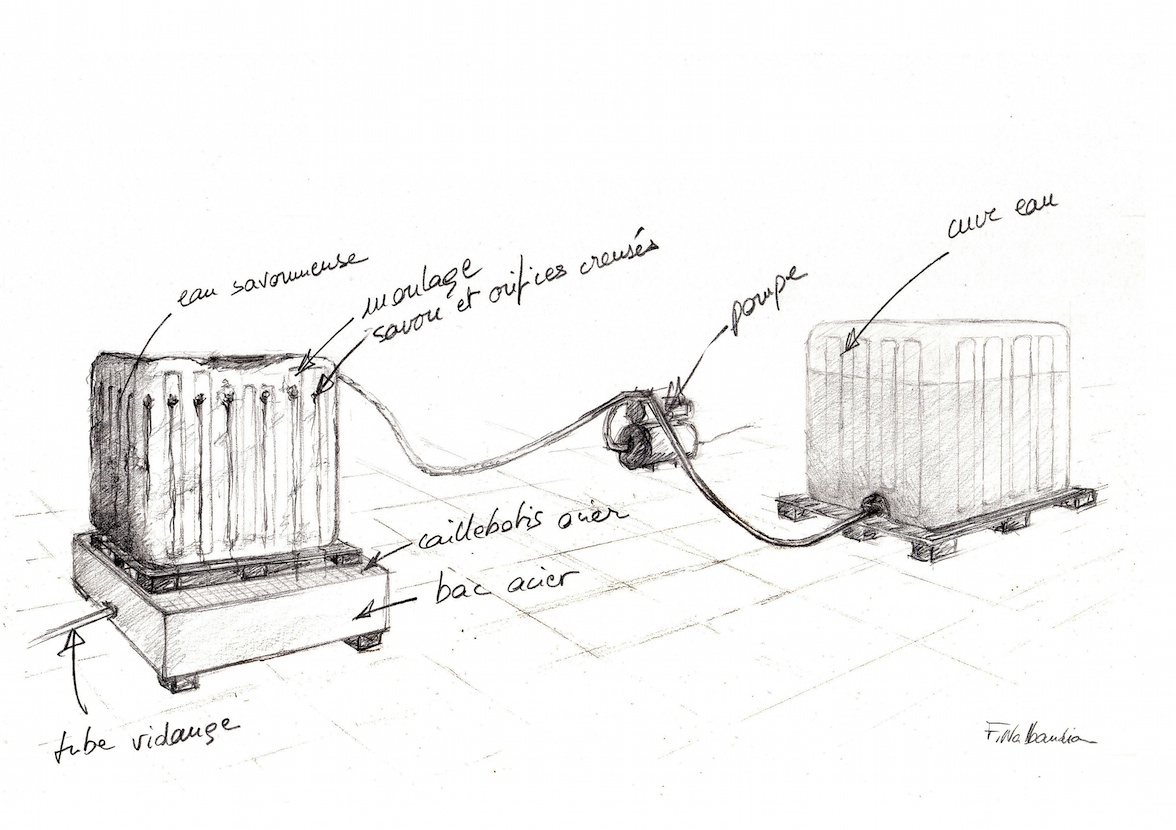 cuve eau
eau savonneuse
moulage
savon et orifices creusés
pompe
caillebotis acier
bac acier
tube vidange
F. Nalbandian